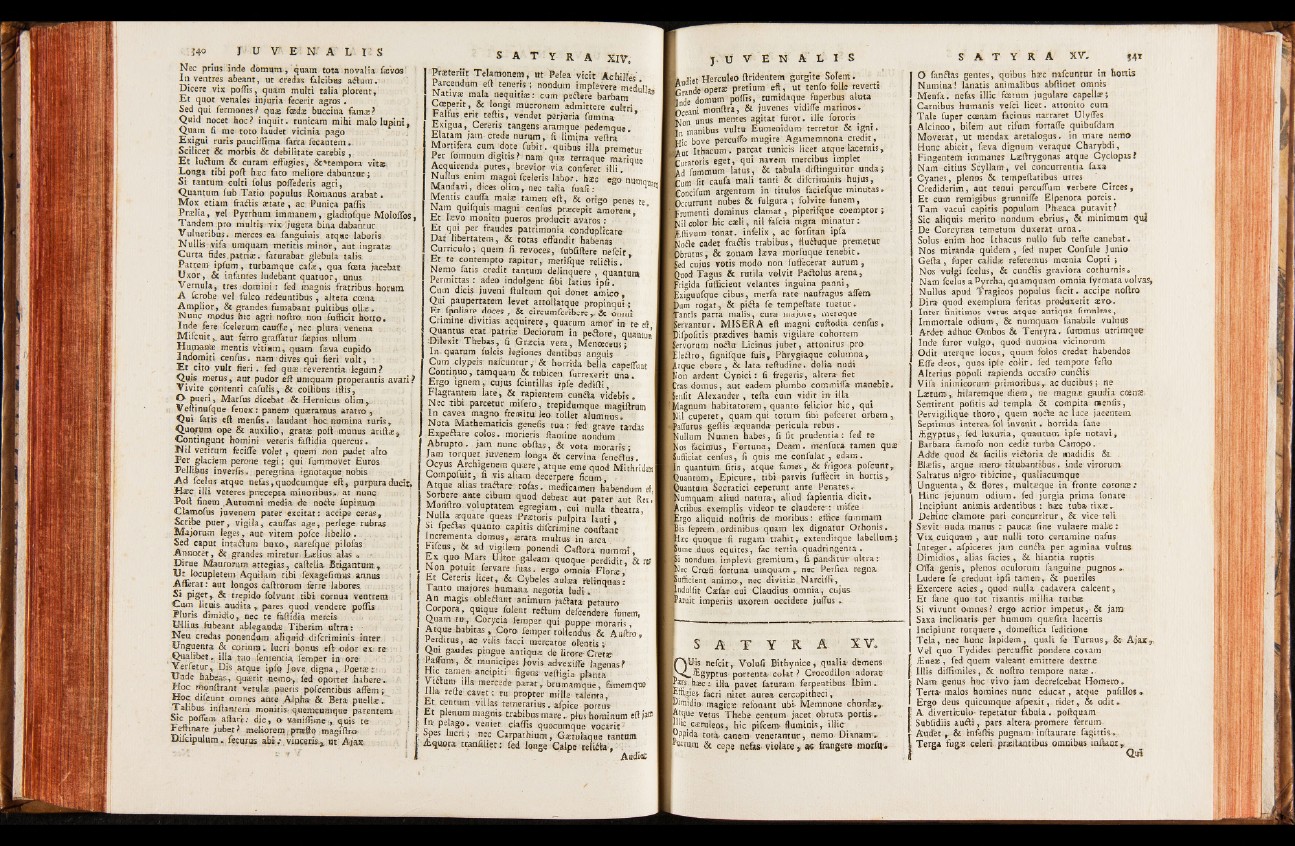 340 JUVENALIS
Nec prius inde domum, quam tota novalia sævos
In ventres abeant, ut credas falcibus actum.
Dicere vix possis, quam multi talia plorent,
Et quot venales injuria fecerit agros.
Sed qui sermones? quam fœdæ buccina famæ?
Quid nocet hoc? inquit. tunicam mihi malo lupini,
Quam si me toto laudet vicinia pago
Exigui ruris paucissima farra secantem.
Scilicet & morbis & debilitate carebis,
Et luctum & curam effugies, & tempora vitæ
Longa tibi post hæc fato meliore dabuntur;
Si tantum culti solus possederis agri,
Quantum sub Tatio populus Romanus arabat.
Mox etiam fractis ætate, ac Punica passis
Prælia, vel Pyrrhum immanem, gladiosque Molossos,
Tandem pro multis vix jugera bina dabantur
Vulneribus. merces ea sanguinis atque laboris
Nullis visa umquam meritis minor, aut ingratæ
Curta fides patriæ. saturabat glebula talis
Patrem ipsum, turbamque casæ, qua fœta jacebat
Uxor, & infantes ludebant quatuor, unus
Vernula, tres domini: sed magnis fratribus horum
A scrobe vel sulco redeuntibus, altera cœna
Amplior, & grandes fumabant pultibus ollæ.
Nunc modus hic agri nostro non sufficit horto.
Inde fere scelerum caussæ, nec plura venena
Miscuit, aut ferro grassatur sæpius ullum
Humanæ mentis vitium, quam sæva cupido
Indomiti census. nam dives qui fieri vult,
Et cito vult fieri. sed quæ reverentia legum?
Quis metus, aut pudor est umquam properantis avari?
Vivite contenti casulis, & collibus istis,
O pueri, Marsus dicebat & Hernicus olim,
Vestinusque senex: panem quæramus aratro,
Qui satis est mensis. laudant hoc numina ruris,
Quorum ope & auxilio, gratæ post munus aristæ,
Contingunt homini veteris fastidia quercus.
Nil vetitum fecisse volet, quem non pudet alto
Per glaciem perone tegi; qui summovet Euros
Pellibus inversis. peregrina ignotaque nobis
Ad scelus atque nefas, quodcumque est, purpura ducit.
Hæc illi veteres præcepta minoribus. at nunc
Post finem Autumni media de nocte supinum
Clamosus juvenem pater excitat: accipe ceras,
Scribe puer, vigila, caussas age, perlege rubras
Majorum leges, aut vitem posce libello.
Sed caput intactum buxo, naresque pilosas
Annotet, & grandes miretur Lælius alas.
Dirue Maurorum attegias, castella Brigantum,
Ut locupletem Aquilam tibi sexagesimus annus
Afferat: aut longos castrorum ferre labores
Si piget, & trepido solvunt tibi cornua ventrem
Cum lituis audita, pares quod vendere possis
Pluris dimidio, nec te fastidia mercis
Ullius subeant ablegandæ Tiberim ultra:
Neu credas ponendum aliquid discriminis inter
Unguenta & corium. lucri bonus est odor ex re
Qualibet. illa tuo sententia semper in ore
Versetur, Dis atque ipso Jove digna, Poetæ:
Unde habeas, quærit nemo, sed oportet habere.
Hoc monstrant vetulæ pueris poscentibus assem;
Hoc discunt omnes ante Alpha & Beta puellæ.
Talibus instantem monitis quemcumque parentem
Sic possem affari: dic, o vanissime, quis te
Festinare jubet? meliorem præsto magistro
Discipulum. securus abi: vinceris, ut Ajax
SATYRA XIV.
Præteriit Telamonem, ut Pelea vicit Achilles.
Parcendum est teneris; nondum implevere medullas
Nativæ mala nequitiæ: cum pectere barbam
Cœperit, & longi mucronem admittere cultri,
Falsus erit testis, vendet perjuria summa
Exigua, Cereris tangens aramque pedemque.
Elatam jam crede nurum, si limina vestra
Mortifera cum dote subit. quibus illa premetur
Per somnum digitis? nam quæ terraque marique
Acquirenda putes, brevior via conferet illi.
Nullus enim magni sceleris labor. hæc ego numquam
Mandavi, dices olim, nec talia suasi:
Mentis caussa malæ tamen est, & origo penes te.
Nam quisquis magni census præcepit amorem,
Et lævo monitu pueros producit avaros:
Et qui per fraudes patrimonia conduplicare
Dat libertatem, & totas effundit habenas
Curriculo; quem si revoces, subsistere nescit,
Et te contempto rapitur, metisque relictis.
Nemo satis credit tantum delinquere, quantum
Permittas: adeo indulgent sibi latius ipsi.
Cum dicis juveni stultum qui donet amico,
Qui paupertatem levet attollatque propinqui;
Et spoliare doces, & circumscribere, & omni
Crimine divitias acquirere, quarum amor in te est,
Quantus erat patriæ Deciorum in pectore, quantum
Dilexit Thebas, si Græcia vera, Menœceus;
In quarum sulcis legiones dentibus anguis
Cum clypeis nascuntur, & horrida bella capessunt
Continuo, tamquam & tubicen surrexerit una.
Ergo ignem, cujus scintillas ipse dedisti,
Flagrantem late, & rapientem cuncta videbis.
Nec tibi parcetur misero, trepidumque magistrum
In cavea magno fremitu leo tollet alumnus.
Nota Mathematicis genesis tua: sed grave tardas
Expectare colos. morieris stamine nondum
Abrupto. jam nunc obstas, & vota moraris;
Jam torquet juvenem longa & cervina senectus.
Ocyus Archigenem quære, atque eme quod Mithridates
Composuit, si vis aliam decerpere ficum,
Atque alias tractare rosas. medicamen habendum est,
Sorbere ante cibum quod debeat aut pater aut Rex.
Monstro voluptatem egregiam, cui nulla theatra,
Nulla æquare queas Prætoris pulpita lauti,
Si spectas quanto capitis discrimine constant
Incrementa domus, ærata multus in arca
Fiscus, & ad vigilem ponendi Castora nummi,
Ex quo Mars Ultor galeam quoque perdidit, & res
Non potuit servare suas. ergo omnia Floræ,
Et Cereris licet, & Cybeles aulæa relinquas:
Tanto majores humana negotia ludi.
An magis oblectant animum jactata petauro
Corpora, quique solent rectum descendere funem,
Quam tu, Corycia semper qui puppe moraris,
Atque habitas, Coro semper tollendus & Austro,
Perditus, ac vilis sacci mercator olentis;
Qui gaudes pingue antiquæ de litore Cretæ
Passum, & municipes Jovis advexisse lagenas?
Hic tamen ancipiti figens vestigia planta
Victum illa mercede parat, brumamque, famemque
Illa reste cavet: tu propter mille talenta,
Et centum villas temerarius. aspice portus
Et plenum magnis trabibus mare. plus hominum est jam
In pelago. veniet classis quocumque vocarit
Spes lucri; nec Carpathium, Gætulaque tantum
Æquora transiliet: sed longe Calpe relicta,
Audiet
JUVENALIS
Audiet Herculeo stridentem gurgite Solem.
Grande operæ pretium est, ut tenso folle reverti
Inde domum possis, tumidaque superbus aluta
Oceani monstra, & juvenes vidisse marinos.
Non unus mentes agitat furor. ille sororis
In manibus vultu Eumenidum terretur & igni.
Hic bove percusso mugire Agamemnona credit,
Aut Ithacum. parcat tunicis licet atque lacernis,
Curatoris eget, qui navem mercibus implet
Ad summum latus, & tabula distinguitur unda;
Cum sit causa mali tanti & discriminis hujus,
Concisum argentum in titulos faciesque minutas.
Occurrunt nubes & fulgura; solvite funem,
Frumenti dominus clamat, piperisque coemptor;
Nil color hic cæli, nil fascia nigra minatur:
Æstivum tonat. infelix, ac forsitan ipsa
Nocte cadet fractis trabibus, fluctuque premetur
Obrutus, & zonam læva morsuque tenebit.
Sed cujus votis modo non suffecerat aurum,
Quod Tagus & rutila volvit Pactolus arena,
Frigida sufficient velantes inguina panni,
Exiguusque cibus, mersa rate naufragus assem
Dum rogat, & picta se tempestate tuetur.
Tantis parta malis, cura majore, metuque
Servantur. MISERA est magni custodia census.
Dispositis prædives hamis vigilare cohortem
Servorum noctu Licinus jubet, attonitus pro
Electro, signisque suis, Phrygiaque columna,
Atque ebore, & lata testudine. dolia nudi
Non ardent Cynici: si fregeris, altera fiet
Cras domus, aut eadem plumbo commissa manebit.
Sensit Alexander, testa cum vidit in illa
Magnum habitatorem, quanto felicior hic, qui
Nil cuperet, quam qui totum sibi posceret orbem,
Passurus gestis æquanda pericula rebus.
Nullum Numen habes, si sit prudentia: sed te
Nos facimus, Fortuna, Deam. mensura tamen quæ
Sufficiat census, si quis me consulat, edam.
In quantum sitis, atque fames, & frigora poscunt,
Quantum, Epicure, tibi parvis suffecit in hortis,
Quantum Socratici ceperunt ante Penates.
Numquam aliud natura, aliud sapientia dicit.
Acribus exemplis videor te claudere: misce
Ergo aliquid nostris de moribus: effice summam
Bis septem ordinibus quam lex dignatur Othonis.
Hæc quoque si rugam trahit, extenditque labellum;
Sume duos equites, fac tertia quadringenta.
Si nondum implevi gremium, si panditur ultra:
Nec Crœsi fortuna umquam, nec Persica regna
Sufficient animo, nec divitiæ Narcissi,
Indulsit Cæsar cui Claudius omnia, cujus
Paruit imperiis uxorem occidere jussus.
SATYRA XV.
QUis nescit, Volusi Bithynice, qualia demens
Ægyptus portenta colat? Crocodilon adorat
Pars hæc: illa pavet saturam serpentibus Ibim.
Effigies sacri nitet aurea cercopitheci,
Dimidio magicæ resonant ubi Memnone chordæ,
Atque vetus Thebe centum jacet obruta portis.
Illic cæruleos, hic piscem fluminis, illic
Oppida tota canem venerantur, nemo Dianam.
Porrum & cepe nefas violare, ac frangere morsu.
SATYRA XV. 341
O sanctas gentes, quibus hæc nascuntur in hortis
Numina! lanatis animalibus abstinet omnis
Mensa. nefas illic fœtum jugulare capellæ;
Carnibus humanis vesci licet. attonito cum
Tale super cœnam facinus narraret Ulysses
Alcinoo, bilem aut risum fortasse quibusdam
Moverat, ut mendax aretalogus. in mare nemo
Hunc abicit, sæva dignum veraque Charybdi,
Fingentem immanes Læstrygonas atque Cyclopas?
Nam citius Scyllam, vel concurrentia saxa
Cyanes, plenos & tempestatibus utres
Crediderim, aut tenui percussum verbere Circes,
Et cum remigibus grunnisse Elpenora porcis.
Tam vacui capitis populum Phæaca putavit?
Sic aliquis merito nondum ebrius, & minimum qui
De Corcyræa temetum duxerat urna.
Solus enim hoc Ithacus nullo sub teste canebat.
Nos miranda quidem, sed nuper Consule Junio
Gesta, super calidæ referemus mœnia Copti;
Nos vulgi scelus, & cunctis graviora cothurnis.
Nam scelus a Pyrrha, quamquam omnia syrmata volvas,
Nullus apud Tragicos populus fecit. accipe nostro
Dira quod exemplum feritas produxerit ævo.
Inter finitimos vetus atque antiqua simultas,
Immortale odium, & numquam sanabile vulnus
Ardet adhuc Ombos & Tentyra. summus utrimque
Inde furor vulgo, quod numina vicinorum
Odit uterque locus, quum solos credat habendos
Esse deos, quos ipse colit. sed tempore festo
Alterius populi rapienda occasio cunctis
Visa inimicorum primoribus, ac ducibus; ne
Lætum, hilaremque diem, ne magnæ gaudia cœnæ
Sentirent positis ad templa & compita mensis,
Pervigilique thoro, quem nocte ac luce jacentem
Septimus interea sol invenit. horrida sane
Ægyptus, sed luxuria, quantum ipse notavi,
Barbara famoso non cedit turba Canopo.
Adde quod & facilis victoria de madidis &
Blæsis, atque mero titubantibus. inde virorum
Saltatus nigro tibicine, qualiacumque
Unguenta, & flores, multæque in fronte coronæ:
Hinc jejunum odium. sed jurgia prima sonare
Incipiunt animis ardentibus: hæc tuba rixæ.
Dehinc clamore pari concurritur, & vice teli
Sævit nuda manus: paucæ sine vulnere malæ:
Vix cuiquam, aut nulli toto certamine nasus
Integer. aspiceres jam cuncta per agmina vultus
Dimidios, alias facies, & hiantia ruptis
Ossa genis, plenos oculorum sanguine pugnos.
Ludere se credunt ipsi tamen, & pueriles
Exercere acies, quod nulla cadavera calcent,
Et sane quo tot rixantis millia turbæ
Si vivunt omnes? ergo acrior impetus, & jam
Saxa inclinatis per humum quæsita lacertis
Incipiunt torquere, domestica seditione
Tela, nec hunc lapidem, quali se Turnus, & Ajax,
Vel quo Tydides percussit pondere coxam
Æneæ, sed quem valeant emittere dextræ
Illis dissimiles, & nostro tempore natæ.
Nam genus hoc vivo jam decrescebat Homero.
Terra malos homines nunc educat, atque pusillos.
Ergo deus quicumque aspexit, ridet, & odit.
A diverticulo repetatur fabula. postquam
Subsidiis aucti, pars altera promere ferrum
Audet, & infestis pugnam instaurare sagittis.
Terga fugæ celeri præstantibus omnibus instant,
Qui